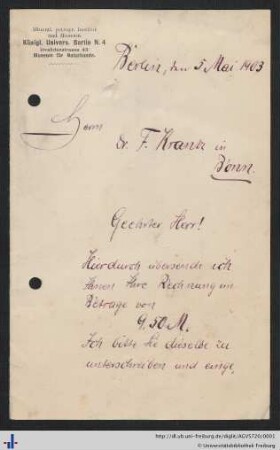 Mineral. petrogr. Institut
und Museum
Königl. Univers. Berlin N. 4
Invalidenstrasse 43
Museum für Naturkunde.
Berlin, den 5 Mai 1903
Herrn
Dr. F. Krantz in
Bonn.
Geehrter Herr!
Hierdurch übersende ich
Ihnen Ihre Rechnung im
Betrage von
9,50 M.
Ich bitte Sie dieselbe zu
unterschreiben und
http://dl.ub.uni-freiburg.de/diglit/AGVS720/0001
© Universitätsbibliothek Freiburg